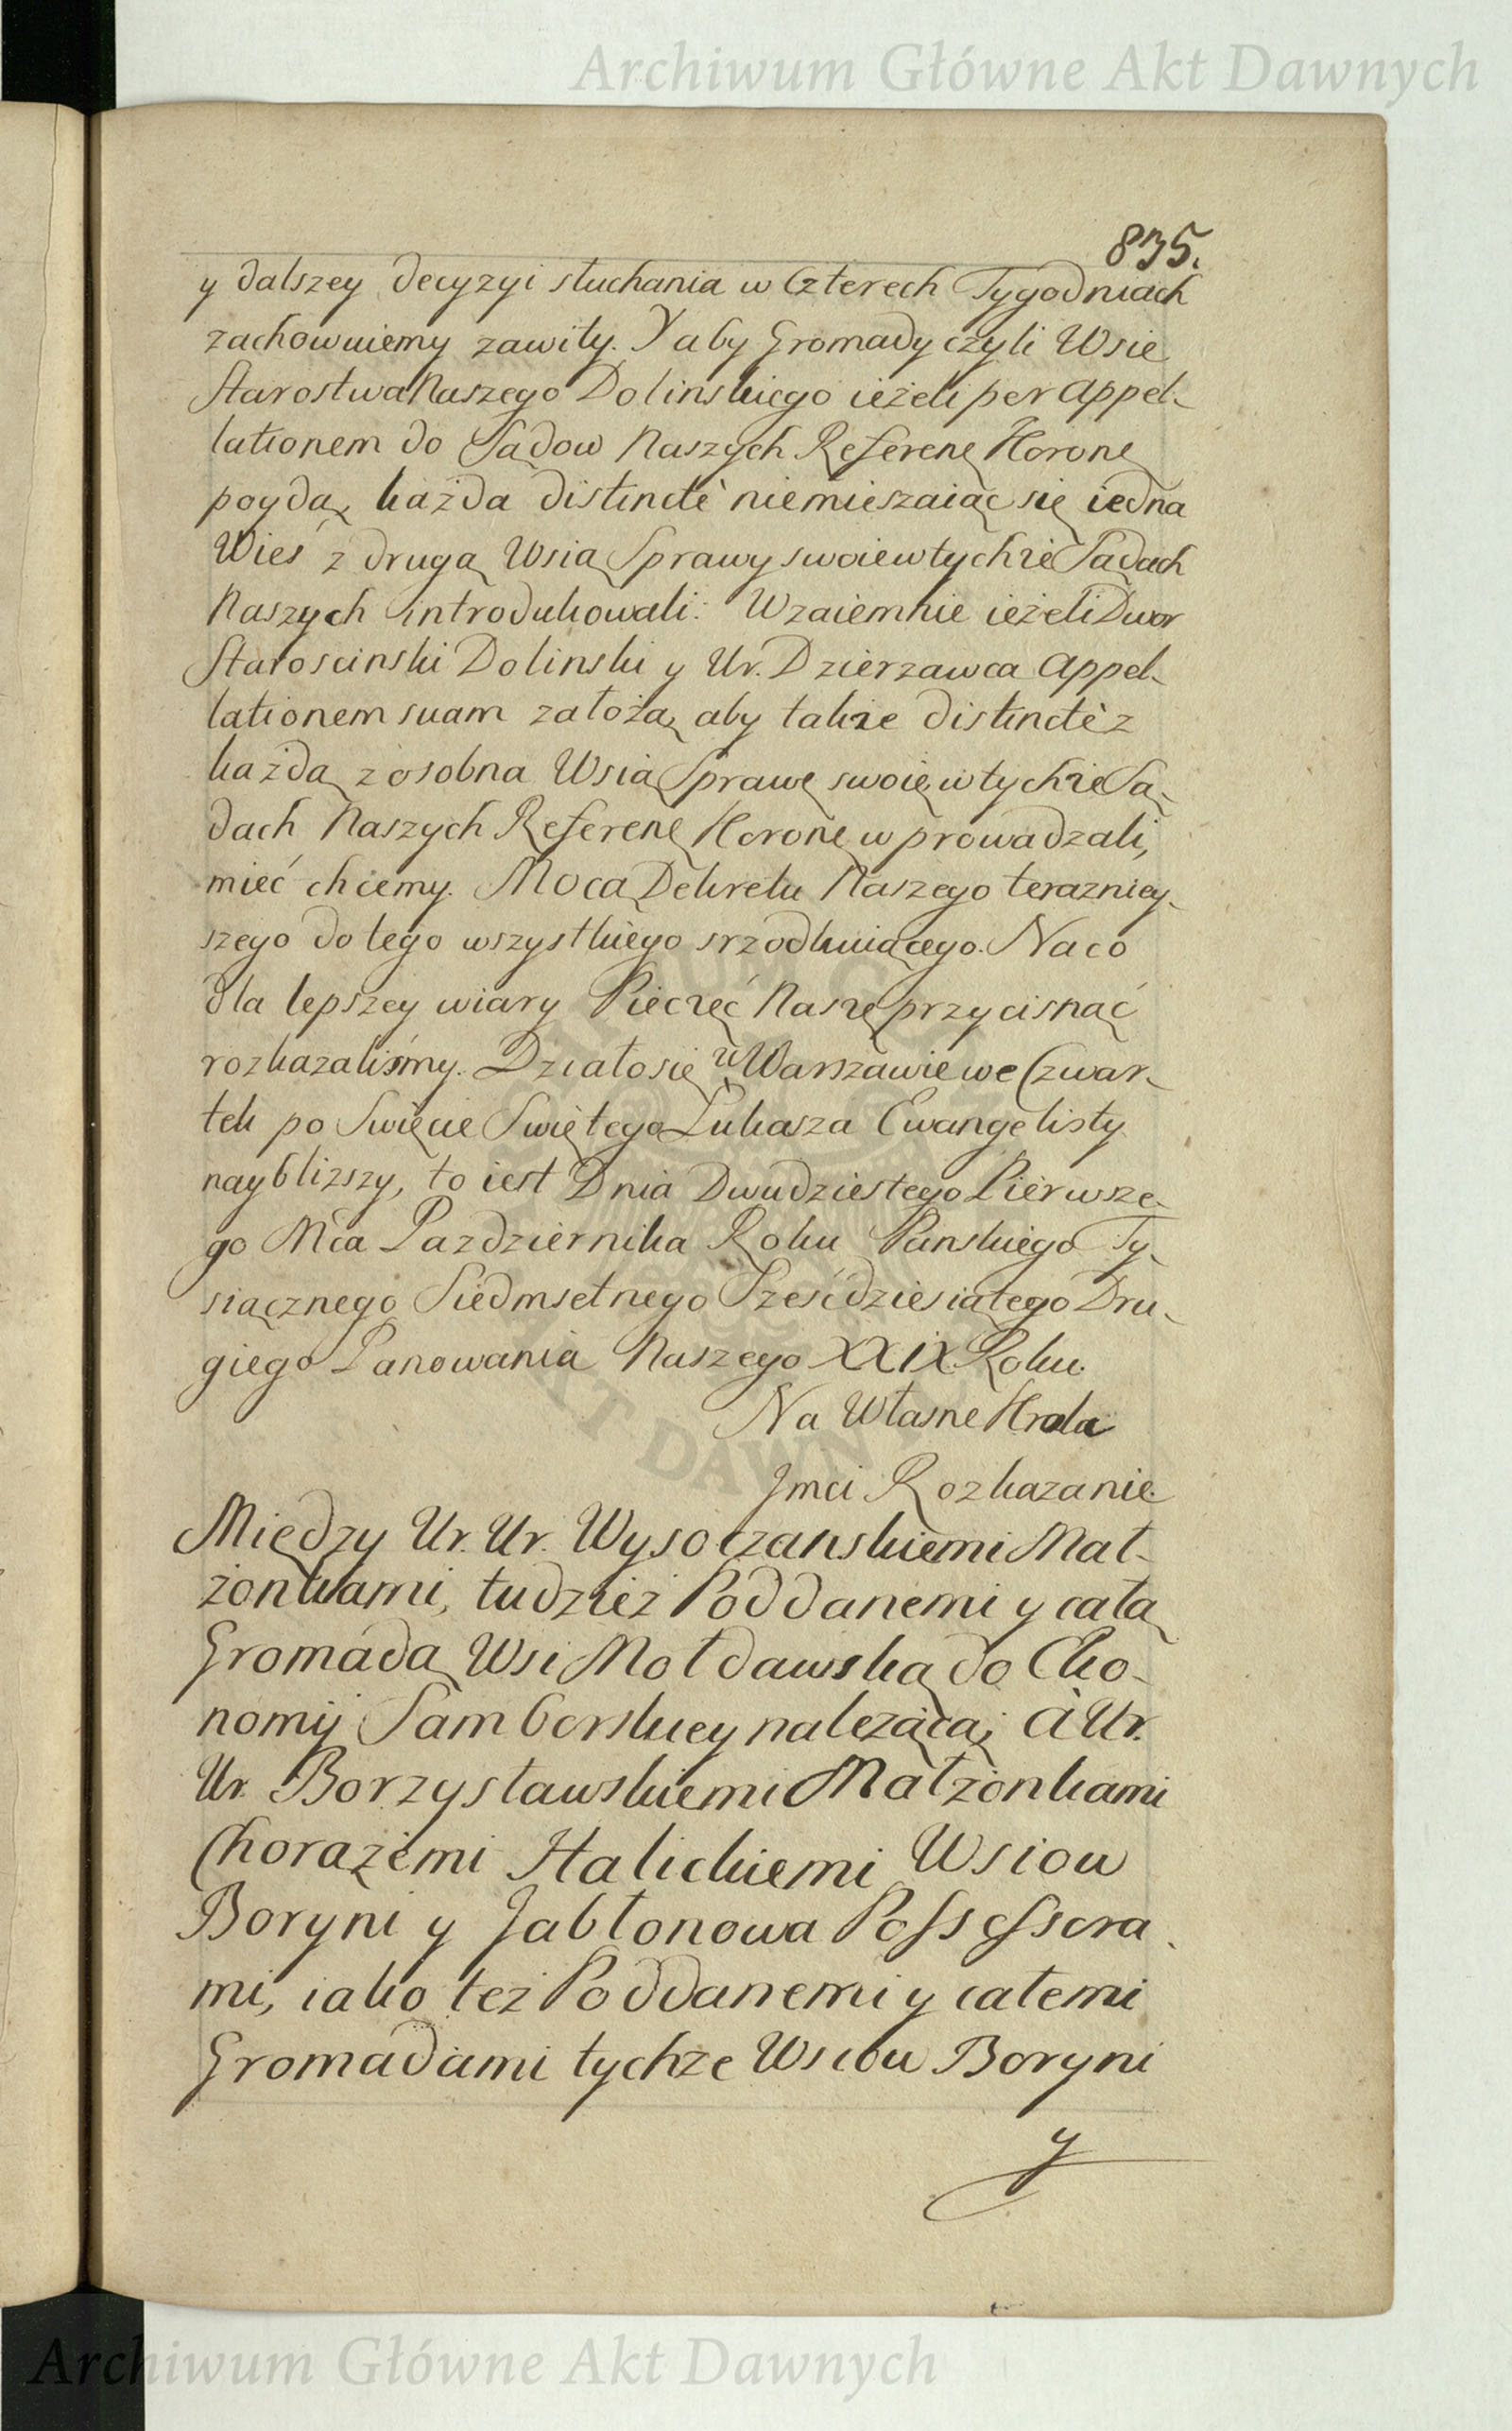 Archiwum Główne Akt Dawnych
835.
y dalszey decyzyi słuchania w Czterech Tygodniach
zachowuiemy zawity. Y aby Gromady czyli Wsie
Starostwa Naszego Dolinskiego ieżeli per appel-
lationem do Sądow Naszych Referenę Koronę
poydą, każda distinctè niemieszaiąc się iedna
Wieś z drugą Wsią Sprawy swoie w tychże Sądach
Naszych introdukowali. Wzaiemnie ieżeli Dwor
Staroscinski Dolinski y Ur. Dzierzawca appel-
lationem suam założą, aby także distinctè z
każdą z osobna Wsią Sprawę swoię w tychże Są-
dach Naszych Referenę Koronę wprowadzali,
mieć chcemy. Mocą Dekretu Naszego terazniey-
szego do tego wszystkiego srzodkuiącego. Na co
dla lepszey wiary Pieczęć Naszę przycisnąć
rozkazaliśmy. Działo się w Warszawie we Czwar-
tek po Swięcie Swiętego Łukasza Ewangelisty
naybliższy, to iest Dnia Dwudziestego Pierwsze-
go Mca Pazdziernika Roku Panskiego Ty-
siącznego Siedmsetnego Sześćdziesiątego Dru-
giego Panowania Naszego XXIX. Roku.
Na Własne Krola
Jmci Rozkazanie.
Między Ur. Ur. Wysoczanskiemi Mał-
żonkami, tudzież Poddanemi y całą
Gromadą Wsi Mołdawską do Eko-
nomij Samborskiey należącą; à Ur.
Ur. Borzysławskiemi Małżonkami
Chorążemi Halickiemi Wsiow
Boryni y Jabłonowa Possessora-
mi, iako też Poddanemi y całemi
Gromadami tychże Wsiow Boryni
y
Archiwum Główne Akt Dawnych